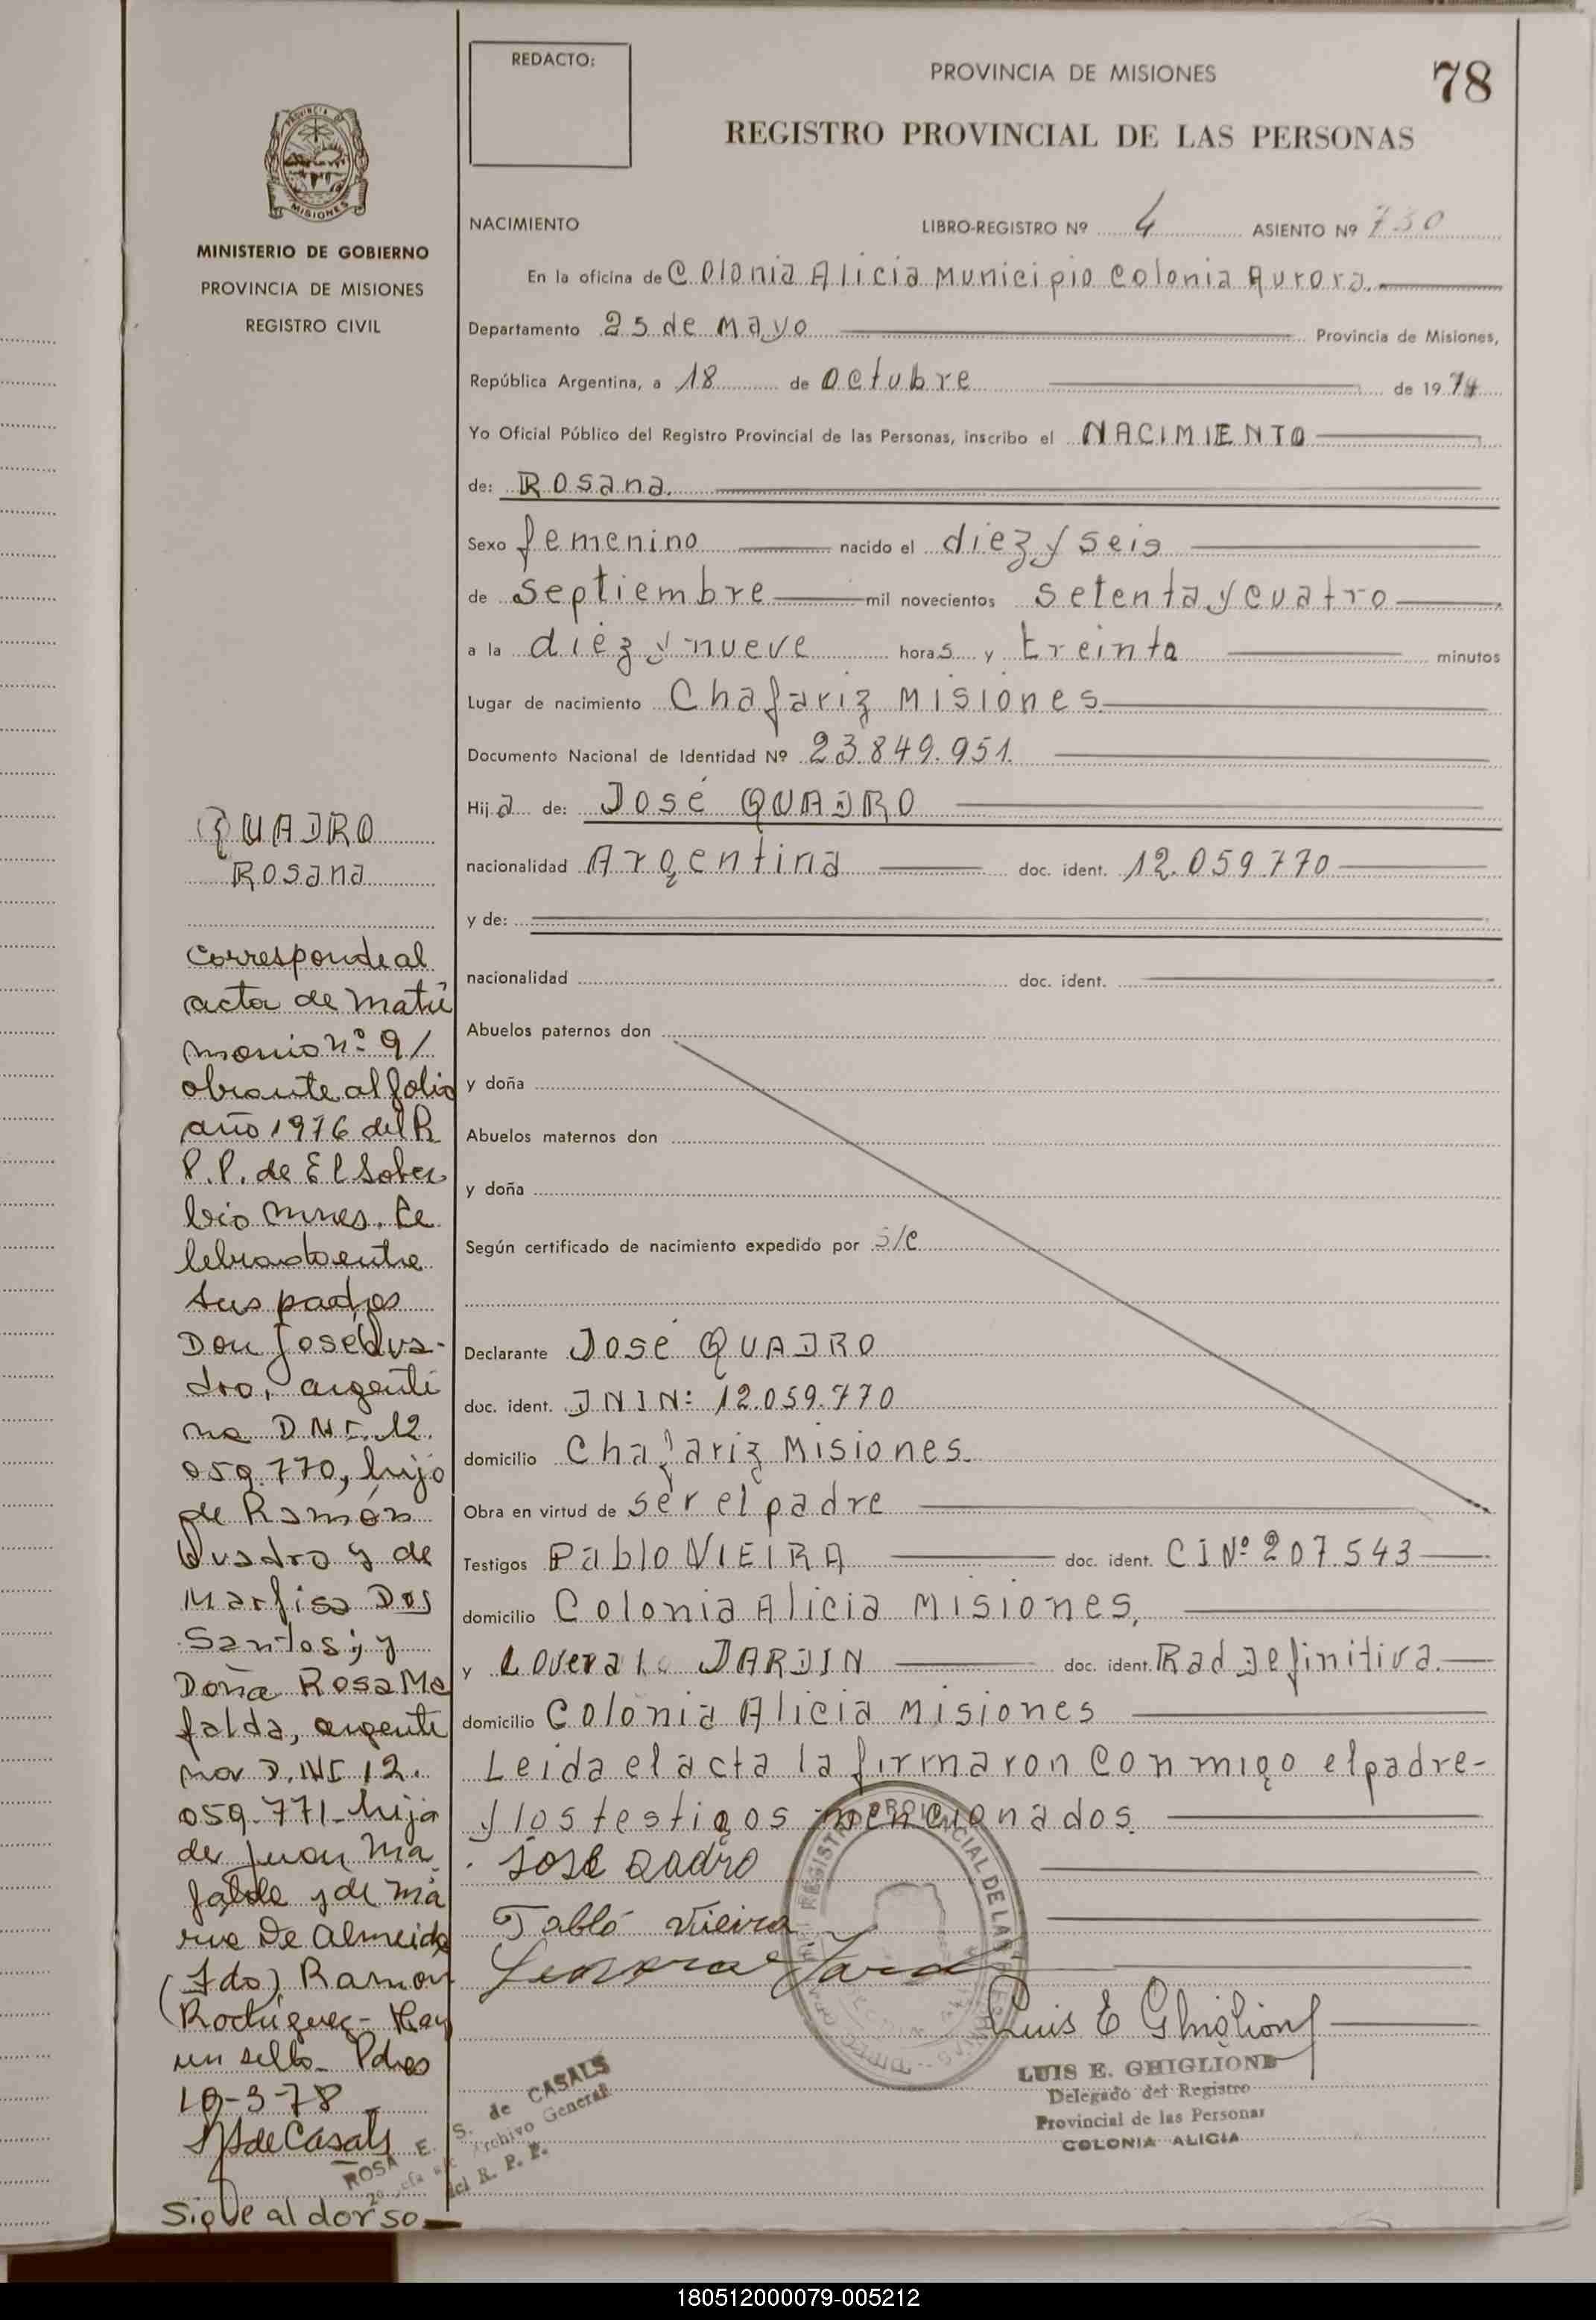 REDACTO:
PROVINCIA DE MISIONES
78
REGISTRO PROVINCIAL DE LAS PERSONAS
PROVINCIA DE
MISIONES
MINISTERIO DE GOBIERNO
PROVINCIA DE MISIONES
REGISTRO CIVIL
NACIMIENTO LIBRO-REGISTRO Nº 4 ASIENTO Nº 730
En la oficina de Colonia Alicia Municipio Colonia Aurora.
Departamento 25 de Mayo Provincia de Misiones,
República Argentina, a 18 de octubre de 1974
Yo Oficial Público del Registro Provincial de las Personas, inscribo el NACIMIENTO
de: Rosana.
Sexo femenino nacido el diez y seis
de septiembre mil novecientos setenta y cuatro
a la diez y nueve horas y treinta minutos
Lugar de nacimiento Chafariz Misiones
Documento Nacional de Identidad Nº 23.849.951.
Hija de: José QUADRO
nacionalidad Argentina doc. ident. 12.059.770
y de:
nacionalidad doc. ident.
Abuelos paternos don
y doña
Abuelos maternos don
y doña
Según certificado de nacimiento expedido por S/C
Declarante José QUADRO
doc. ident. DNIN: 12.059.770
domicilio Chafariz Misiones.
Obra en virtud de ser el padre
Testigos Pablo VIEIRA doc. ident. CI Nº 207.543
domicilio Colonia Alicia Misiones,
y JARDIN doc. ident. Rad Definitiva.
domicilio Colonia Alicia Misiones
Leida el acta la firmaron conmigo el padre-
y los testigos mencionados.
José Qadro
Pabló Vieira
Luis E Ghiglione
LUIS E. GHIGLIONE
Delegado del Registro
Provincial de las Personas
COLONIA ALICIA
REGISTRO PROVINCIAL DE LAS
QUADRO
Rosana
Corresponde al
acta de matri
monio nº 9/
obrante al folio
año 1976 del R
P.P. de El Sober
bio Mnes. Ce
lebrado entre
sus padres
Don José Qua-
dro, argenti
no D.N.I. 12.
059.770, hijo
de Ramón
Quadro y de
Marfisa Dos
Santos; y
Doña Rosa Ma
falda, argenti
na D.NI 12.
059-771- hija
de Juan Ma
falda y de Ma
ria De Almeida
(Fdo) Ramon
Rodriguez- Hay
un sello- Pdas
10-3-78
S de Casals
ROSA E. S. de CASALS
Archivo General
del R. P. P.
Sigue al dorso
180512000079-005212